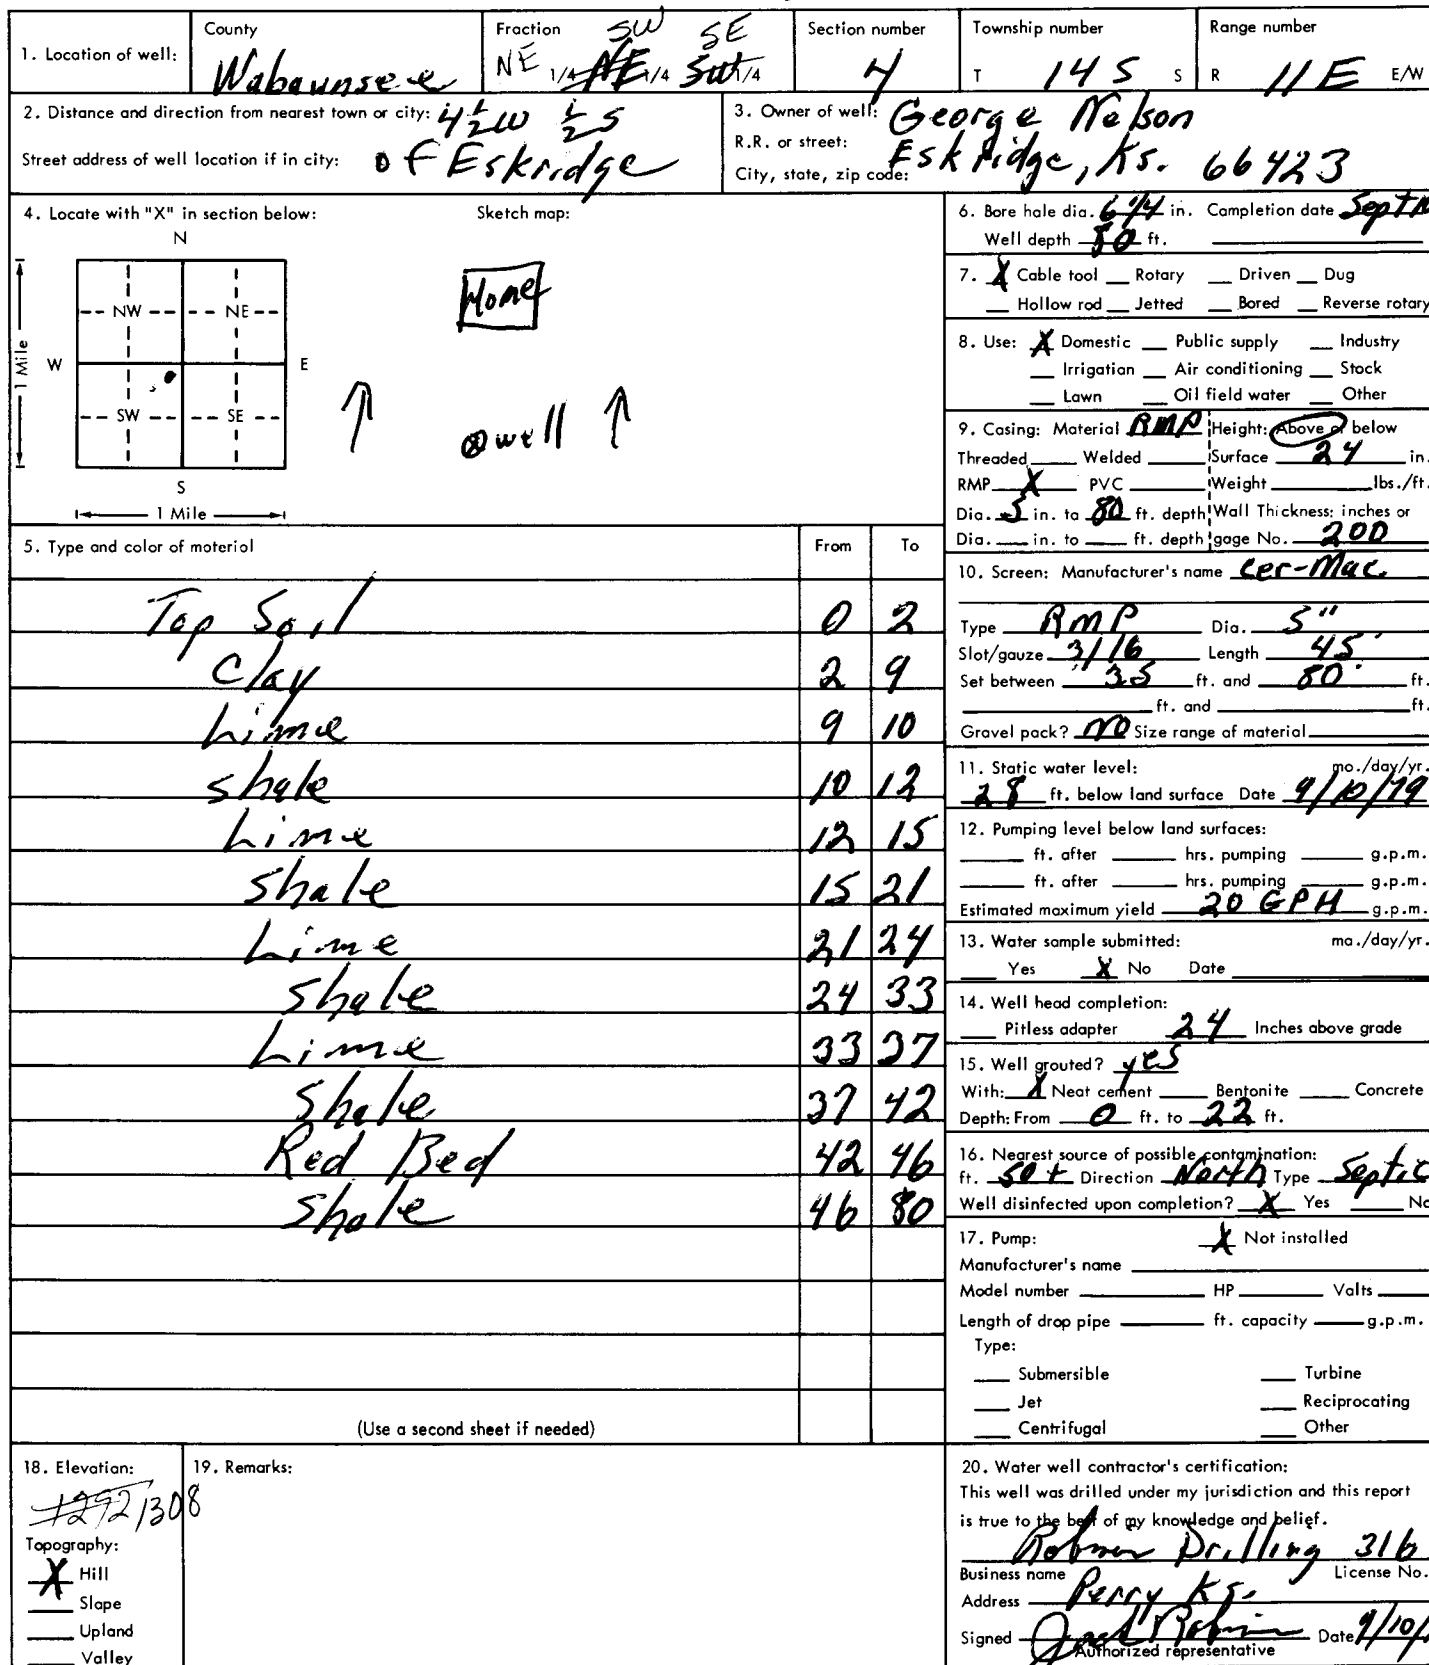 County Fraction SW SE Section number Township number Range number
1. Location of well: Wabaunsee NE 1/4 NE 1/4 SW 1/4 4 T 14 S S R 11 E E/W
2. Distance and direction from nearest town or city: 4 1/2 W 1/2 S
Street address of well location if in city: of Eskridge
3. Owner of well: George Nelson
R.R. or street:
City, state, zip code: Eskridge, Ks. 66423
4. Locate with "X" in section below: Sketch map:
N
NW NE
W E
SW SE
S
1 Mile
1 Mile
Home
well
5. Type and color of material From To
Top Soil 0 2
Clay 2 9
Lime 9 10
shale 10 12
Lime 12 15
Shale 15 21
Lime 21 24
Shale 24 33
Lime 33 37
Shale 37 42
Red Bed 42 46
Shale 46 80
(Use a second sheet if needed)
6. Bore hole dia. 6 1/4 in. Completion date Sept
Well depth 80 ft.
7. X Cable tool Rotary Driven Dug
Hollow rod Jetted Bored Reverse rotary
8. Use: X Domestic Public supply Industry
Irrigation Air conditioning Stock
Lawn Oil field water Other
9. Casing: Material RMP Height: Above or below
Threaded Welded Surface 24 in.
RMP X PVC Weight lbs./ft.
Dia. 5 in. to 80 ft. depth Wall Thickness: inches or
Dia. in. to ft. depth gage No. 200
10. Screen: Manufacturer's name Cer-Mac.
Type RMP Dia. 5"
Slot/gauze 3/16 Length 45'
Set between 35 ft. and 80' ft.
ft. and ft.
Gravel pack? NO Size range of material
11. Static water level: mo./day/yr.
28 ft. below land surface Date 9/10/79
12. Pumping level below land surfaces:
ft. after hrs. pumping g.p.m.
ft. after hrs. pumping g.p.m.
Estimated maximum yield 20 GPH g.p.m.
13. Water sample submitted: mo./day/yr.
Yes X No Date
14. Well head completion:
Pitless adapter 24 Inches above grade
15. Well grouted? yes
With: X Neat cement Bentonite Concrete
Depth: From 0 ft. to 22 ft.
16. Nearest source of possible contamination:
ft. 50+ Direction North Type Septic
Well disinfected upon completion? X Yes No
17. Pump: X Not installed
Manufacturer's name
Model number HP Volts
Length of drop pipe ft. capacity g.p.m.
Type:
Submersible Turbine
Jet Reciprocating
Centrifugal Other
18. Elevation:
1292 1308
Topography:
X Hill
Slope
Upland
Valley
19. Remarks:
20. Water well contractor's certification:
This well was drilled under my jurisdiction and this report
is true to the best of my knowledge and belief.
Drilling 316
Business name License No.
Address Perry Ks.
Signed Jack Date 9/10/
Authorized representative